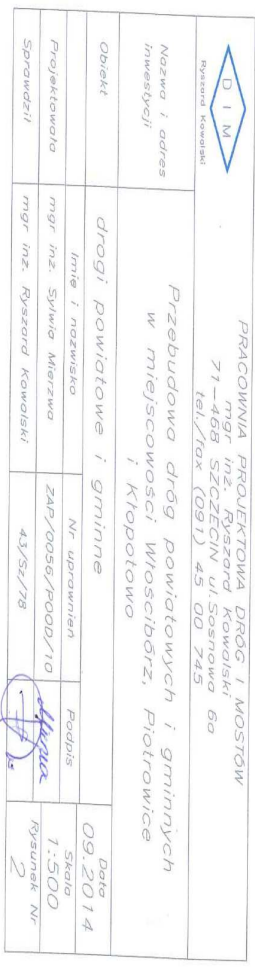 DIM
Ryszard Kowalski
PRACOWNIA PROJEKTOWA DRÓG I MOSTÓW
mgr inż. Ryszard Kowalski
71-468 SZCZECIN ul.Sosnowa 6a
tel./fax (091) 45 00 745
Nazwa i adres
inwestycji
Przebudowa dróg powiatowych i gminnych
w miejscowości Włościbórz, Piotrowice
i Kłopotowo
Obiekt
drogi powiatowe i gminne
Data
09.2014
Imię i nazwisko
Nr uprawnień
Podpis
Skala
1:500
Projektowała
mgr inż. Sylwia Mierzwa
ZAP/0056/POOD/10
Sprawdził
mgr inż. Ryszard Kowalski
43/Sz/78
Rysunek Nr
2